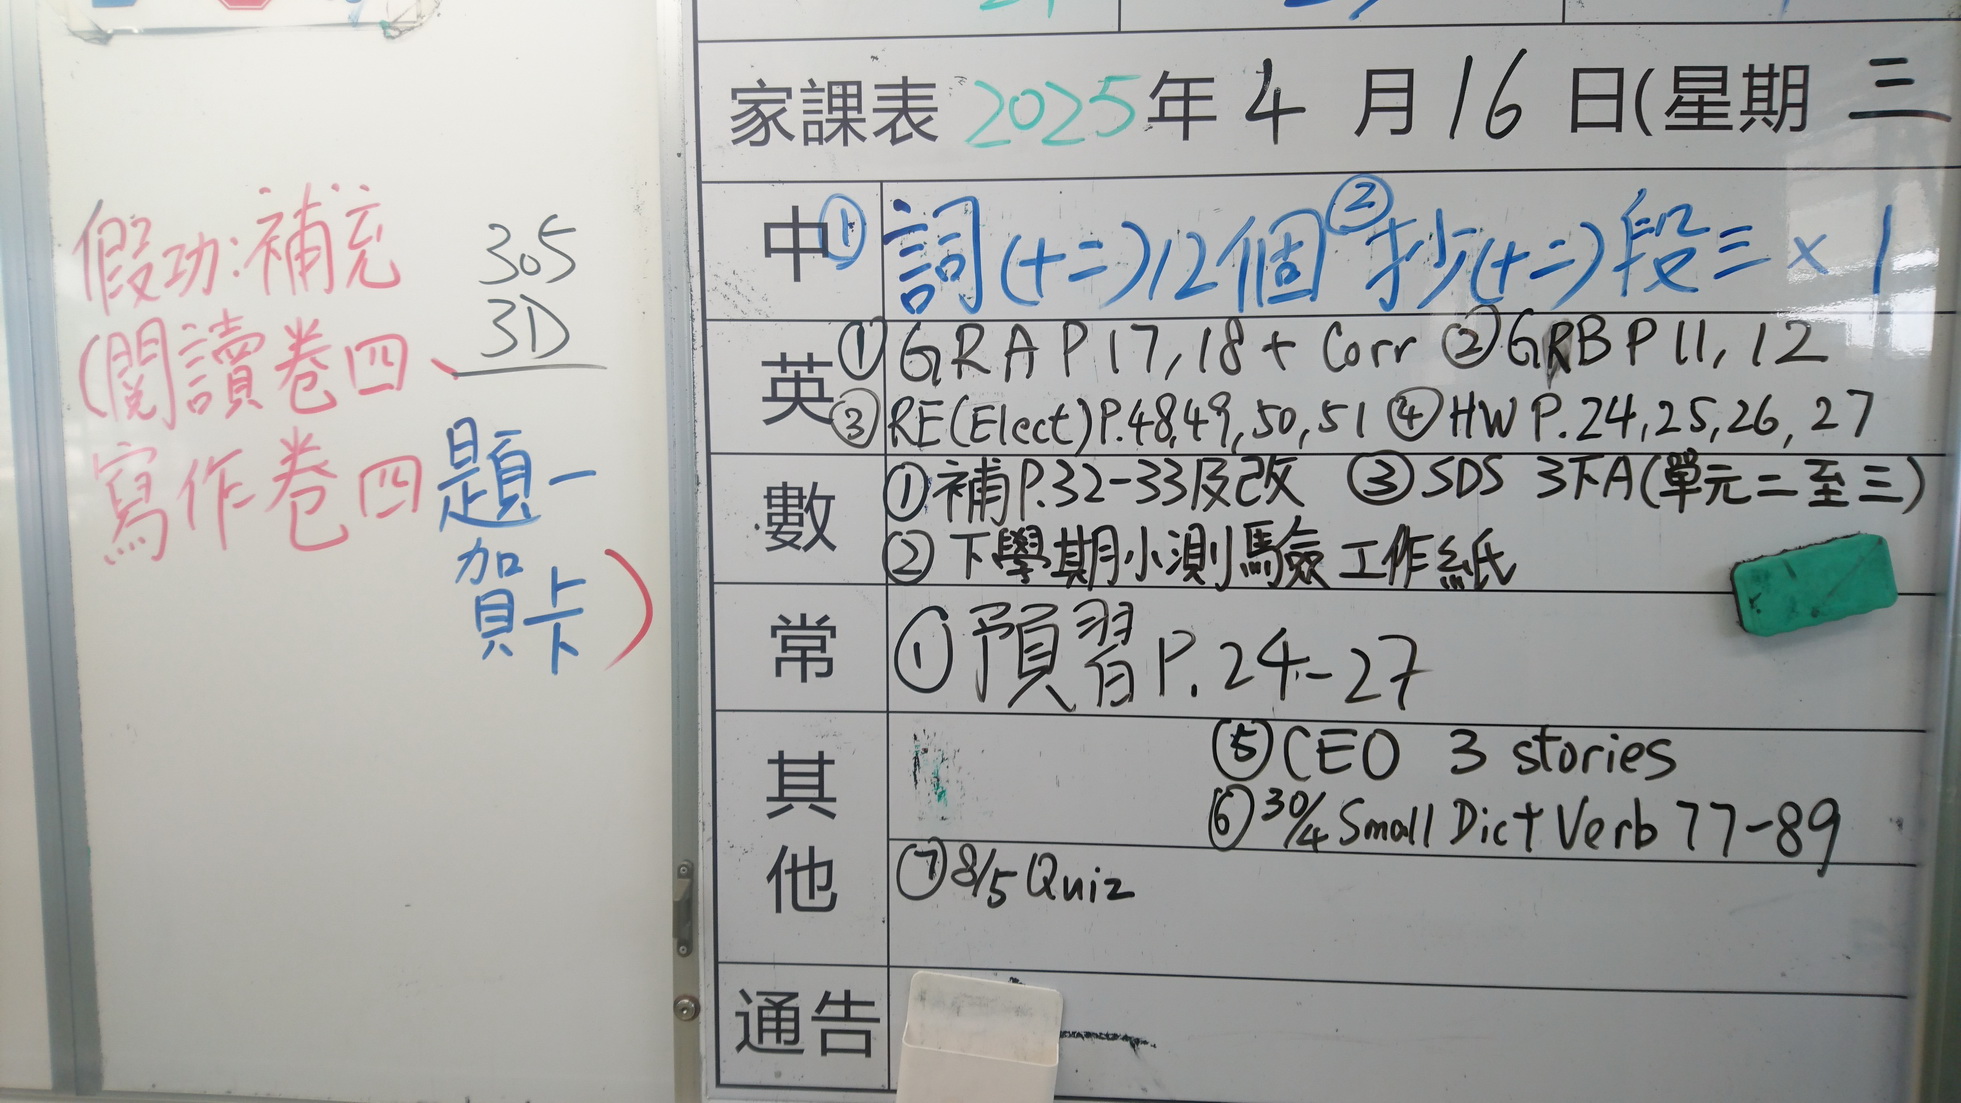 假功:補充
(閱讀卷四、
寫作卷四
題一
賀卡)
305
3D
家課表 2025年 4 月 16 日(星期 三
中 ① 詞(十二)12個 ② 抄(十二)段三 × 1
英 ① GRA P 17, 18 + Corr ② GRB P 11, 12
③ RE(Elect)P.48,49,50,51 ④ HW P.24,25,26,27
數 ① 補P.32-33及改 ③ SDS 3下A(單元二至三)
② 下學期小測驗工作紙
常 ① 預習 P.24-27
其他
⑤ CEO 3 stories
⑥ 30/4 Small Dict Verb 77-89
⑦ 8/5 Quiz
通告